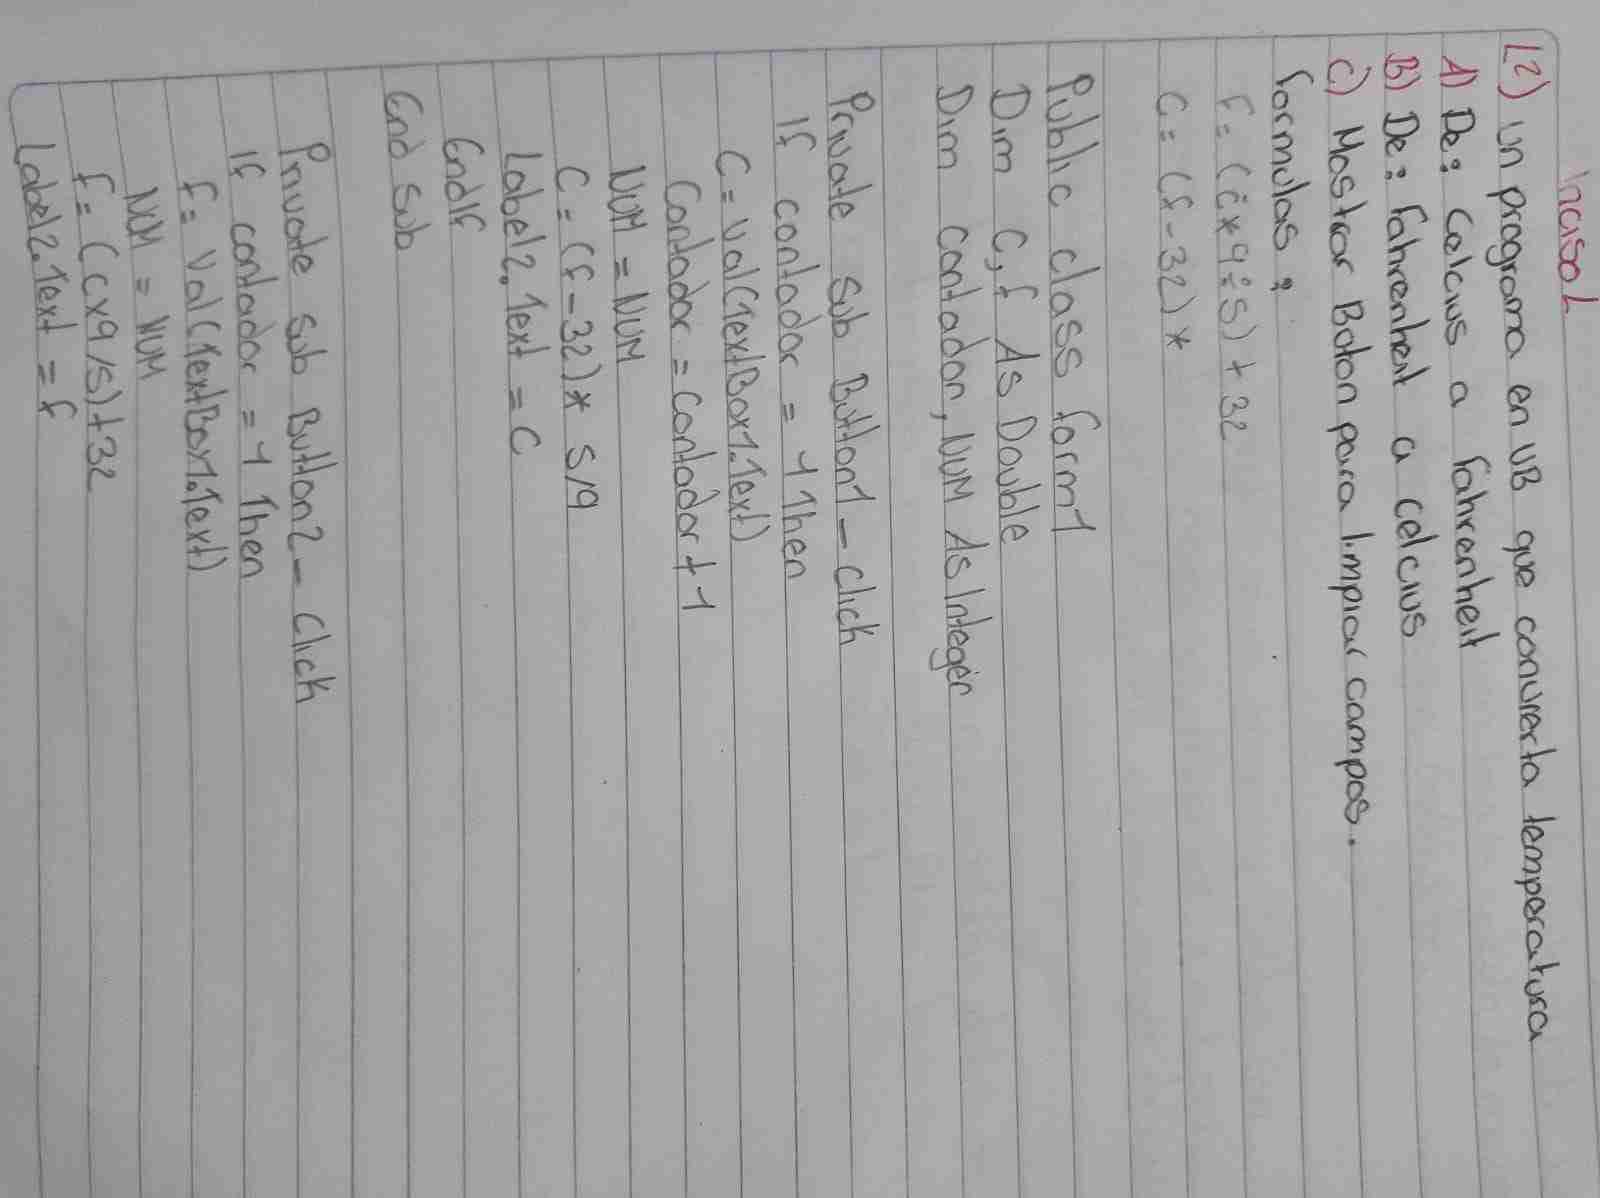 IncisoL
L2) Un programa en VB que convierta temperatura
A) De: Celcius a fahrenheit
B) De: fahrenheit a celcius
C) Mostrar Boton para limpiar campos.
formulas:
F= (c*9÷5) + 32
C= (f-32)*
Public class form1
Dim C, f As Double
Dim contador, NUM As Integer
Private Sub Button1_click
If contador = 1 Then
C= val(TextBox1.Text)
Contador = contador + 1
NUM = NUM
C= (f-32)* 5/9
Label2.Text = C
EndIf
End Sub
Private Sub Button2_Click
If contador = 1 Then
f= val(TextBox1.Text)
NUM = NUM
f= (cx9/5)+32
Label2.Text = f